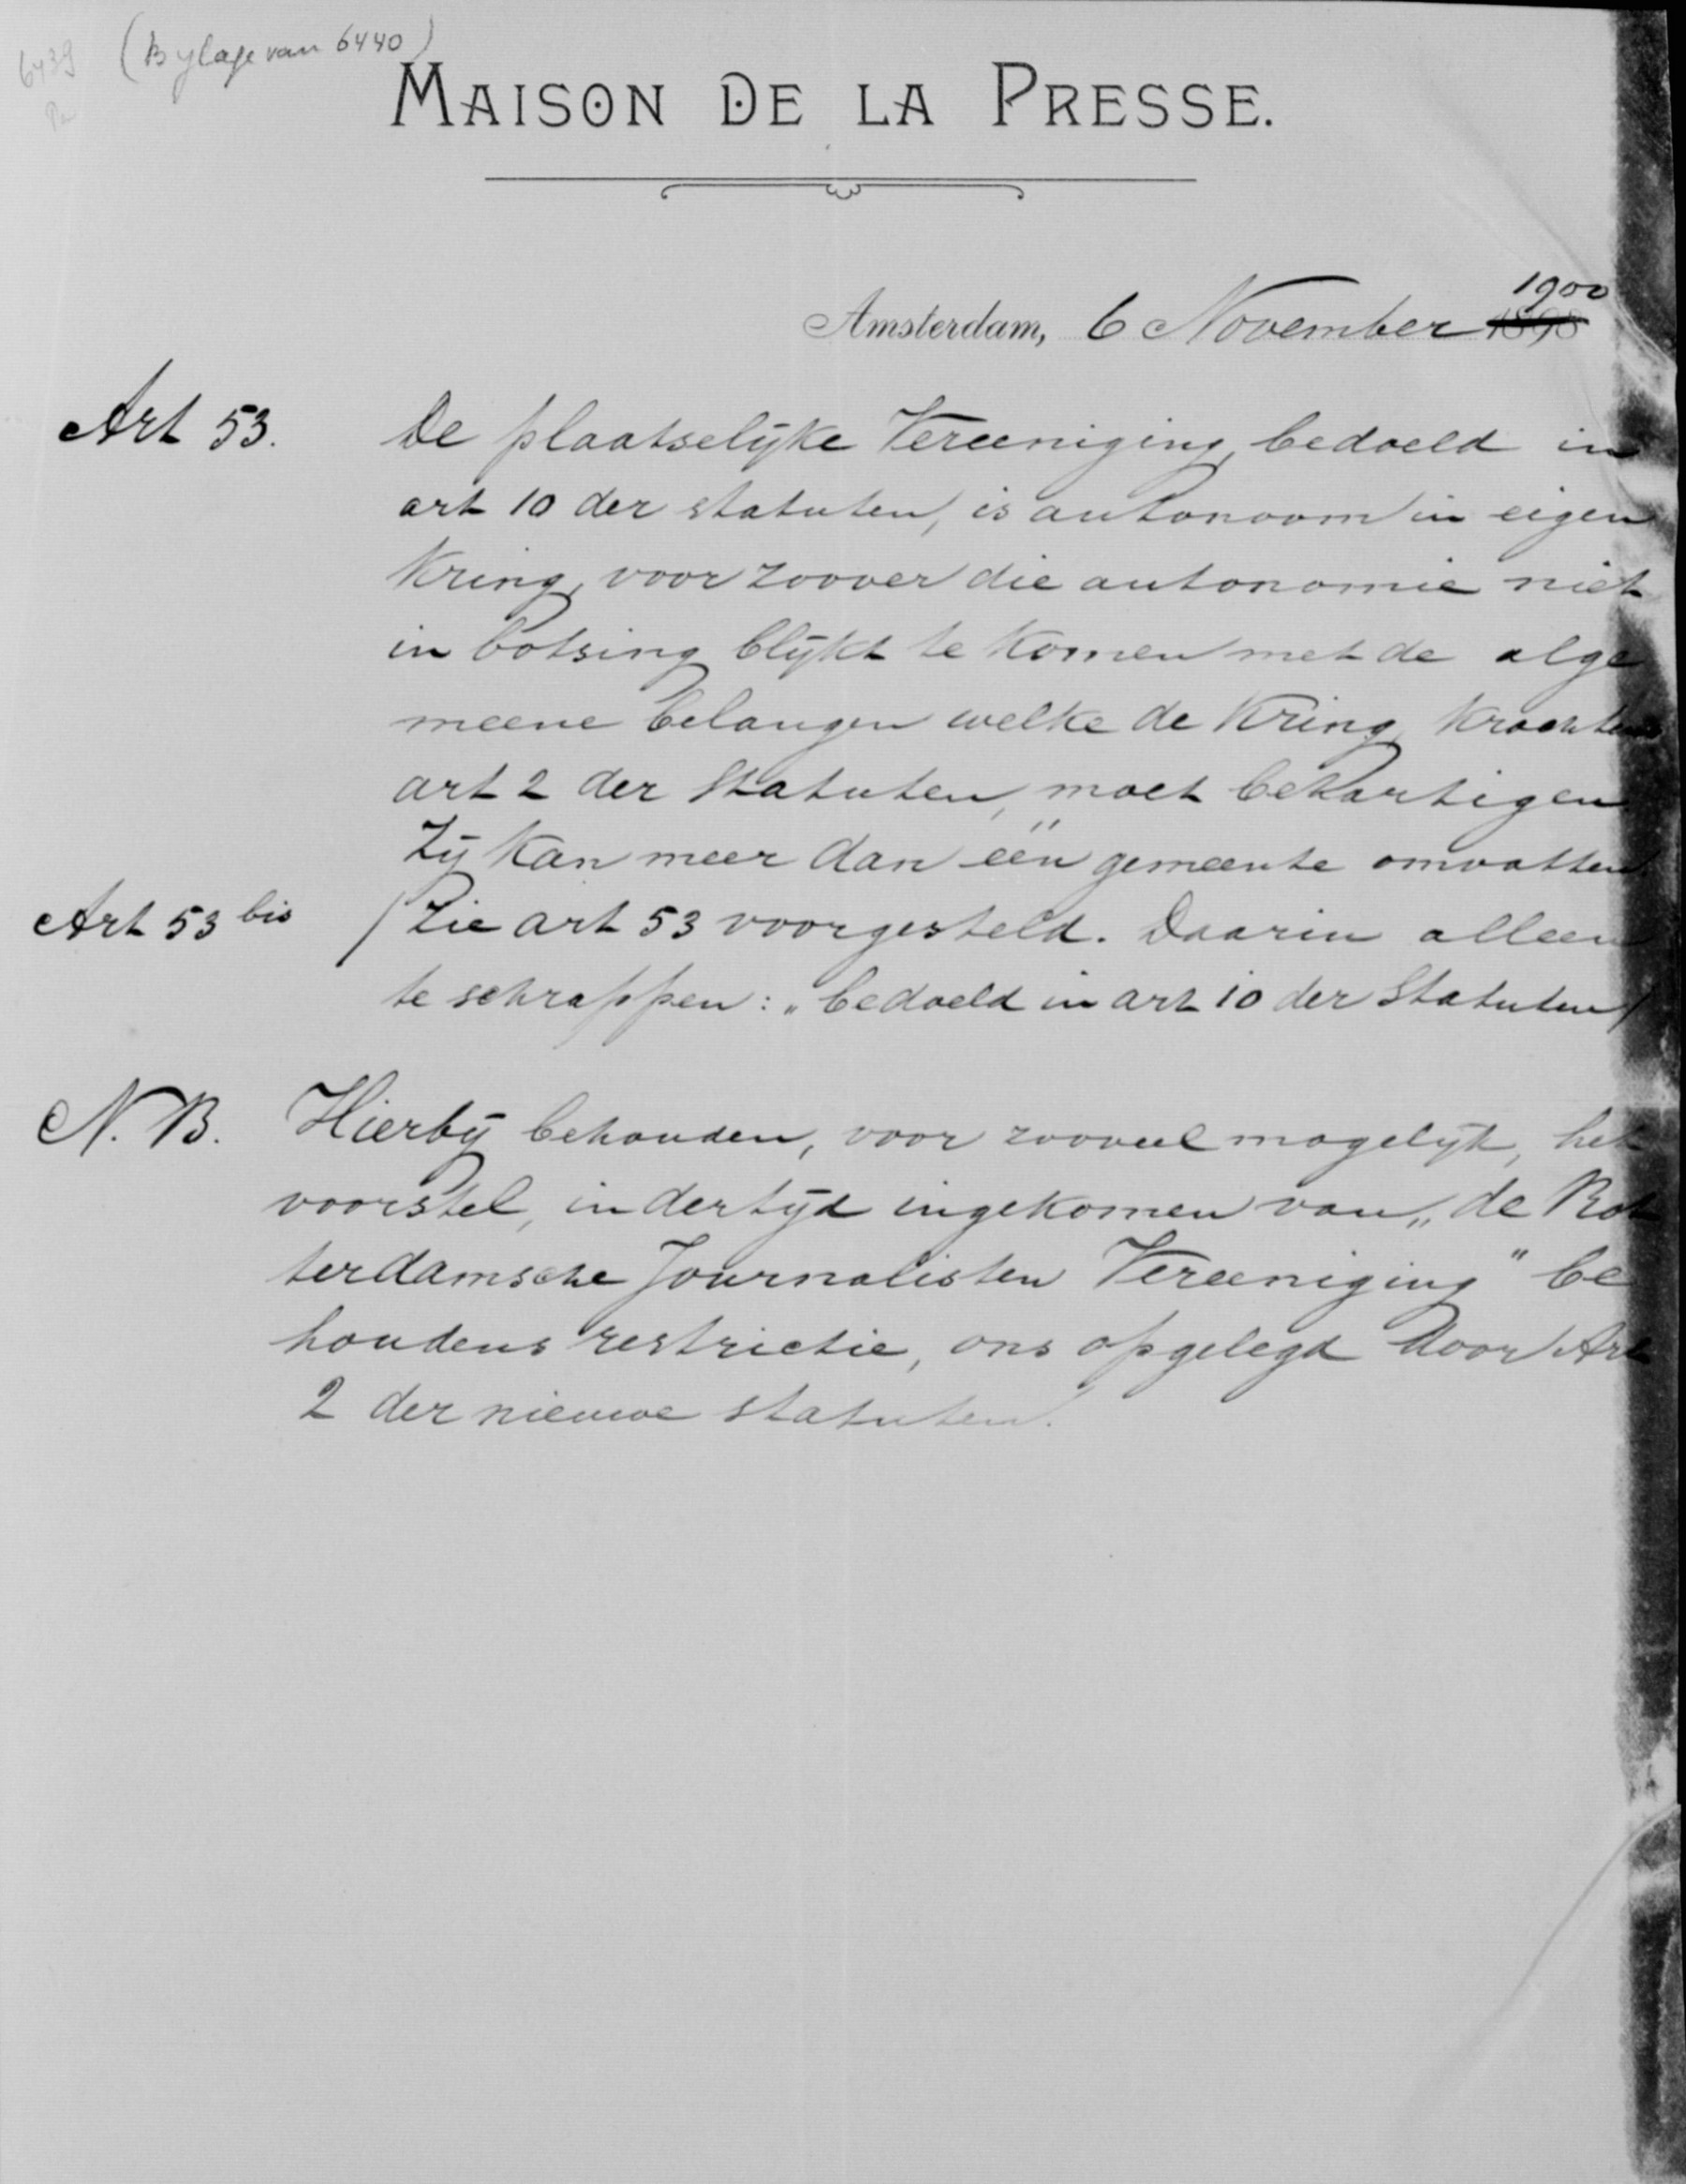 6439 (Bylage van 6440)
Pa
MAISON DE LA PRESSE.
1900
Amsterdam, 6 November 1898
Art 53. De plaatselijke Vereeniging, bedoeld in
art 10 der statuten, is autonoom in eigen
Kring, voor zoover die autonomie niet
in botsing blijkt te komen met de alge
meene belangen welke de Kring, krachtens
art 2 der Statuten, moet behartigen
Zij kan meer dan één gemeente omvatten.
Art 53 bis / Zie art 53 voorgesteld. Daarin alleen
te schrappen: „bedoeld in art 10 der Statuten /
N. B. Hierbij behouden, voor zooveel mogelijk, het
voorstel, indertijd ingekomen van „de Rot
terdamsche Journalisten Vereeniging" be
houdens restrictie, ons opgelegd door Art
2 der nieuwe statuten.